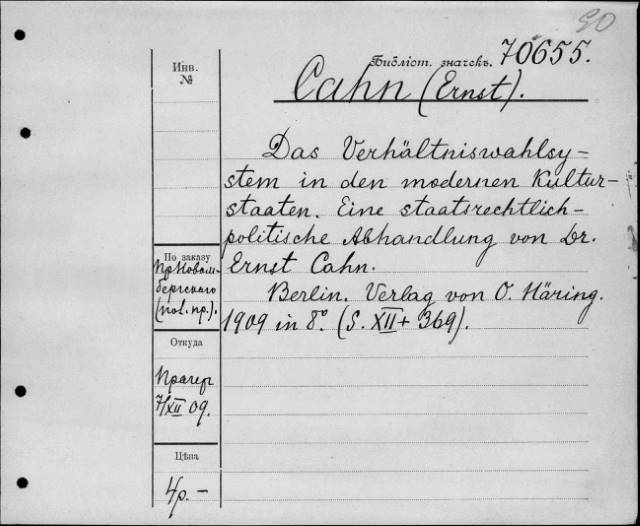 90
Библіот. значекъ. 70655.
Инв.
№
Cahn (Ernst).
Das Verhältniswahlsy-
stem in den modernen Kultur-
staaten. Eine staatsrechtlich-
politische Abhandlung von Dr.
Ernst Cahn.
Berlin. Verlag von O. Häring.
1909 in 8°. (S. XII + 369).
По заказу
пр. Новом-
бергского
(pol. пр.).
Откуда
Прагер
7/XII 09.
Цѣна
4р. –